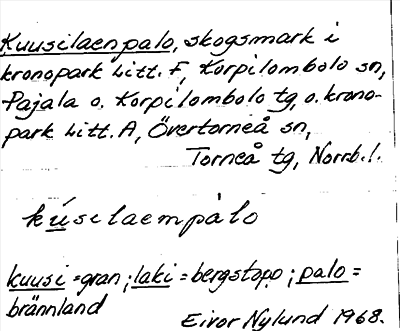 Kuusilaenpalo, skogsmark i
kronopark Litt. F, Korpilombolo sn,
Pajala o. Korpilombolo tg, o. krono-
park Litt. A, Övertorneå sn,
Torneå tg, Norrb. l.
kúsilaempàlo
kuusi = gran; laki = bergstopp; palo =
brännland
Eivor Nylund 1968.